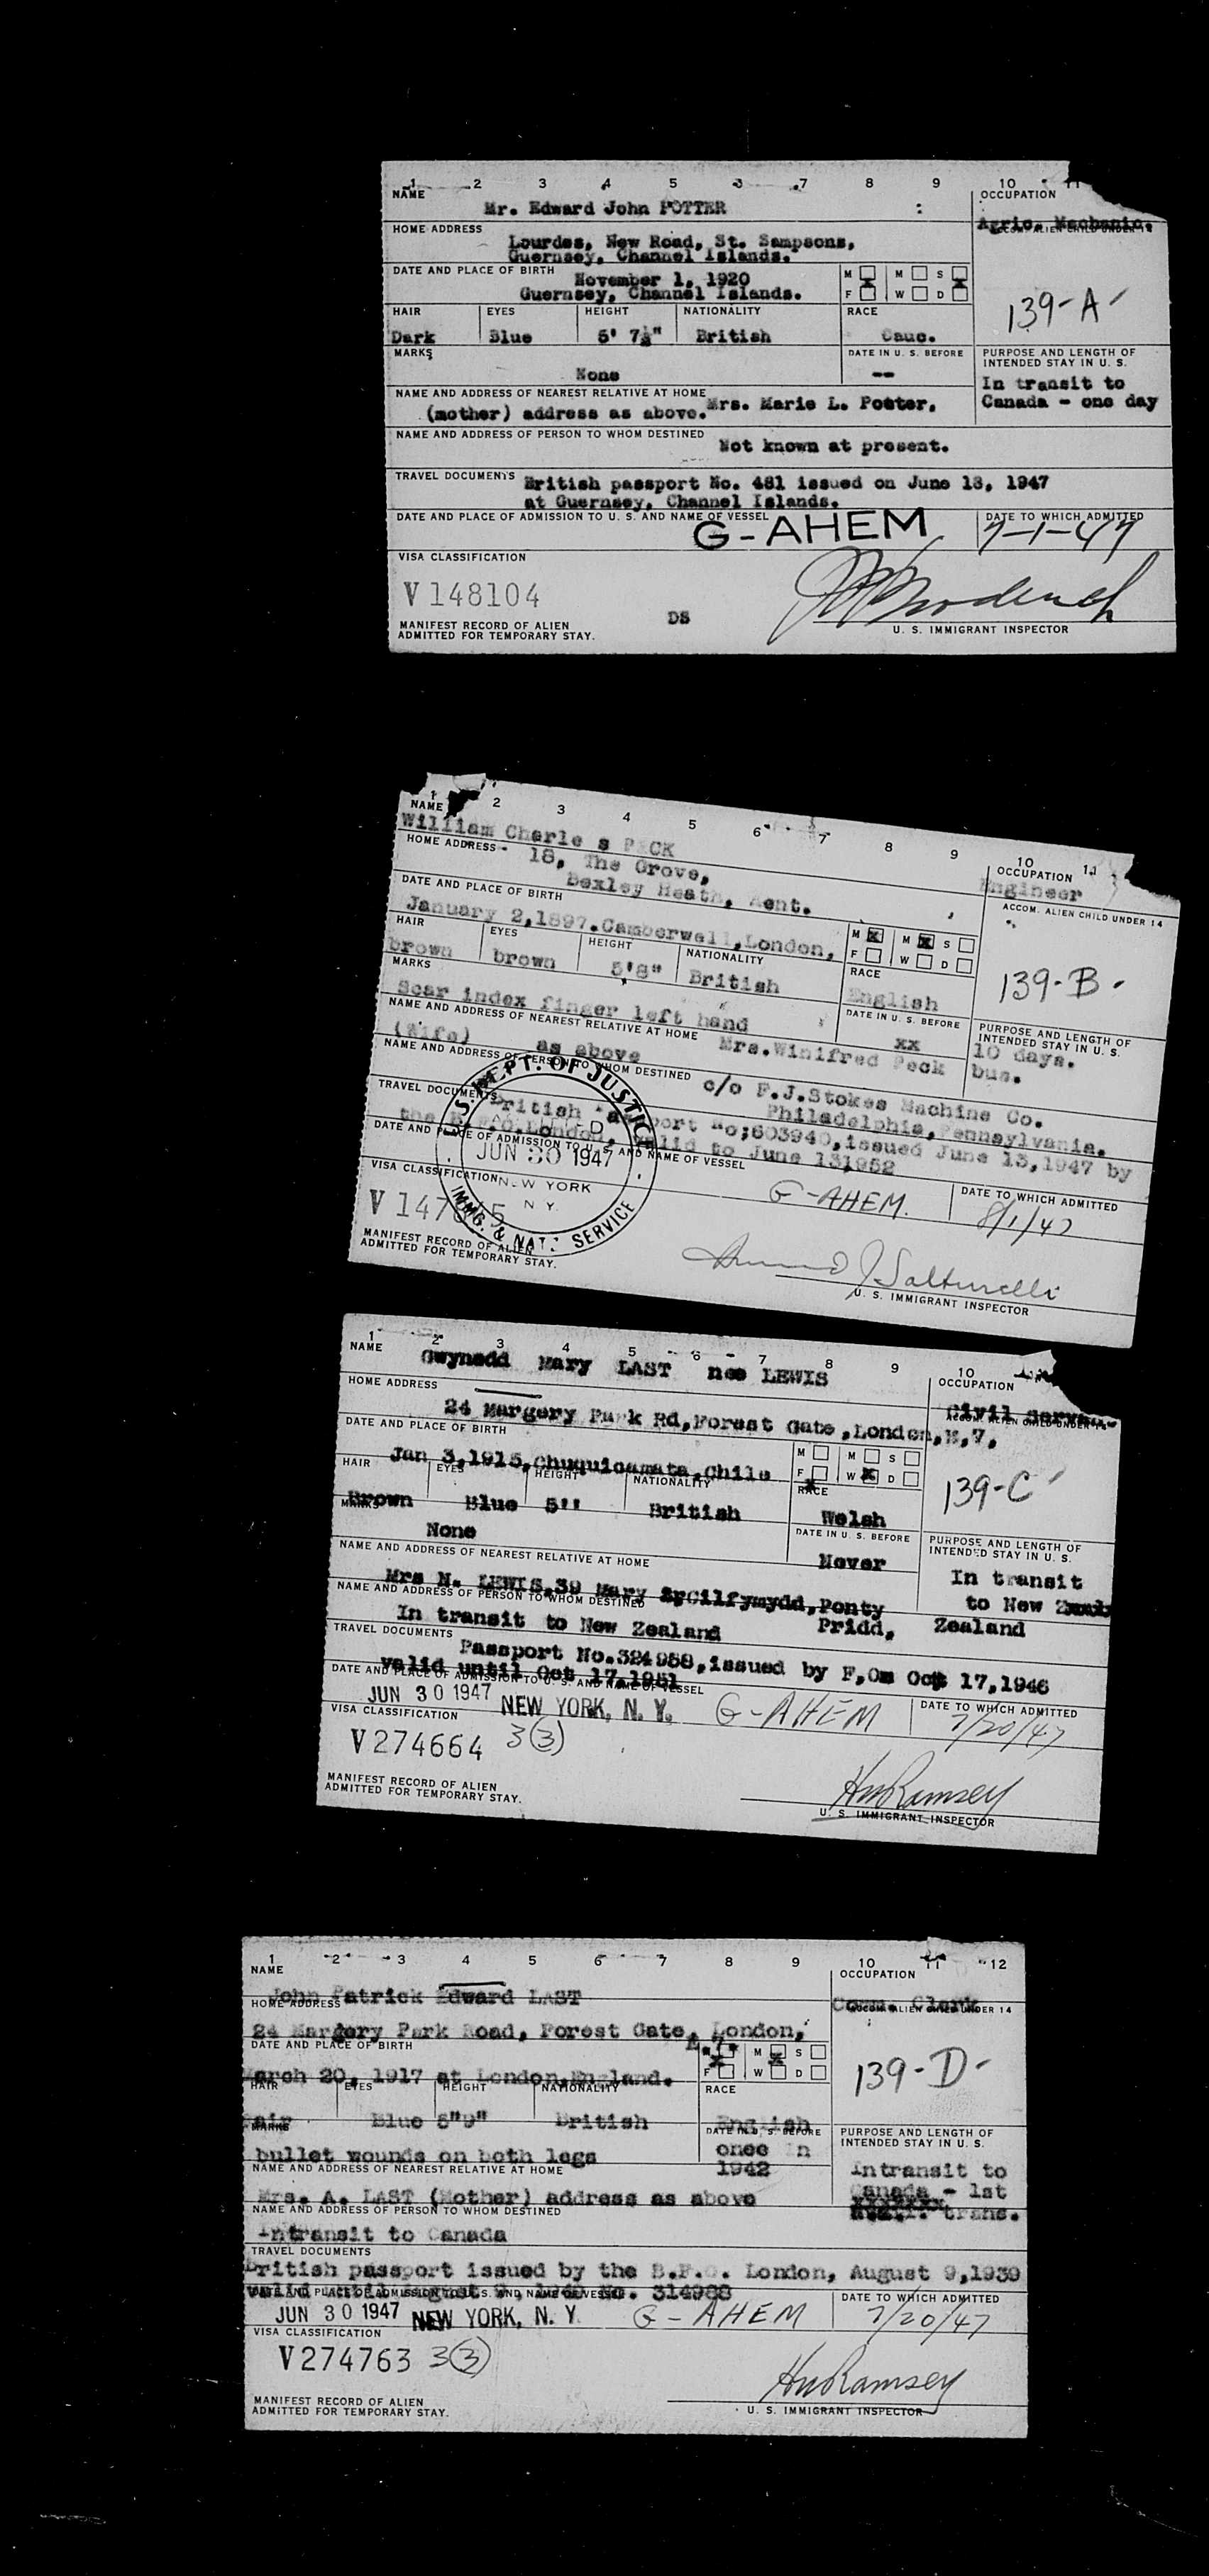 1 2 3 4 5 6 7 8 9 10 11
NAME
OCCUPATION
Mr. Edward John POTTER
Agric. Mechanic.
ACCOM. ALIEN CHILD UNDER 14
HOME ADDRESS
Lourdes, New Road, St. Sampsons,
Guernsey, Channel Islands.
DATE AND PLACE OF BIRTH
November 1, 1920
Guernsey, Channel Islands.
M X M S X
F W D
139-A
HAIR EYES HEIGHT NATIONALITY RACE
Dark Blue 5' 7½" British Cauc.
MARKS DATE IN U. S. BEFORE
None --
PURPOSE AND LENGTH OF
INTENDED STAY IN U. S.
In transit to
Canada - one day
NAME AND ADDRESS OF NEAREST RELATIVE AT HOME
Mrs. Marie L. Potter.
(mother) address as above.
NAME AND ADDRESS OF PERSON TO WHOM DESTINED
Not known at present.
TRAVEL DOCUMENTS
British passport No. 481 issued on June 13, 1947
at Guernsey, Channel Islands.
DATE AND PLACE OF ADMISSION TO U. S. AND NAME OF VESSEL
G-AHEM
DATE TO WHICH ADMITTED
7-1-47
VISA CLASSIFICATION
V 148104
DS
MANIFEST RECORD OF ALIEN
ADMITTED FOR TEMPORARY STAY.
U. S. IMMIGRANT INSPECTOR
1 2 3 4 5 6 7 8 9 10 11
NAME
OCCUPATION
William Charle s PECK
Engineer
ACCOM. ALIEN CHILD UNDER 14
HOME ADDRESS
18, The Grove,
Bexley Heath, Kent.
DATE AND PLACE OF BIRTH
January 2,1897.Camberwell,London,
M X M X S
F W D
139-B
HAIR EYES HEIGHT NATIONALITY RACE
brown brown 5'8" British English
MARKS DATE IN U. S. BEFORE
Scar index finger left hand xx
PURPOSE AND LENGTH OF
INTENDED STAY IN U. S.
10 days.
bus.
NAME AND ADDRESS OF NEAREST RELATIVE AT HOME
Mrs.Winifred Peck
(Wife) as above
NAME AND ADDRESS OF PERSON TO WHOM DESTINED
c/o F.J.Stokes Machine Co.
Philadelphia, Pennsylvania.
TRAVEL DOCUMENTS
British Passport No;603940,issued June 13,1947 by
the B.F.O.London, valid to June 131952
DATE AND PLACE OF ADMISSION TO U. S. AND NAME OF VESSEL
G-AHEM.
DATE TO WHICH ADMITTED
8/1/47
U.S. DEPT. OF JUSTICE
JUN 30 1947
NEW YORK
N.Y.
IMMG. & NAT. SERVICE
VISA CLASSIFICATION
MANIFEST RECORD OF ALIEN
ADMITTED FOR TEMPORARY STAY.
U. S. IMMIGRANT INSPECTOR
1 2 3 4 5 6 7 8 9 10
NAME
OCCUPATION
Gwynedd Mary LAST nee LEWIS
Civil
ACCOM. ALIEN CHILD UNDER 14
HOME ADDRESS
24 Margery Park Rd,Forest Gate,London,E,7,
DATE AND PLACE OF BIRTH
Jan 3,1915,Chuquicamata,Chile
M M S
F X W X D
139-C
HAIR EYES HEIGHT NATIONALITY RACE
Brown Blue 5'' British Welsh
MARKS DATE IN U. S. BEFORE
None Never
PURPOSE AND LENGTH OF
INTENDED STAY IN U. S.
In transit
to New
Zealand
NAME AND ADDRESS OF NEAREST RELATIVE AT HOME
Mrs N. LEWIS,39 Mary Ponty
Pridd,
NAME AND ADDRESS OF PERSON TO WHOM DESTINED
In transit to New Zealand
TRAVEL DOCUMENTS
Passport No.324958,issued by F,O Oct 17,1946
valid until Oct 17,1951
DATE AND PLACE OF ADMISSION TO U. S. AND NAME OF VESSEL
JUN 30 1947 NEW YORK, N. Y. G-AHEM
DATE TO WHICH ADMITTED
7/20/47
VISA CLASSIFICATION
V274664 3(3)
MANIFEST RECORD OF ALIEN
ADMITTED FOR TEMPORARY STAY.
HWRamsey
U. S. IMMIGRANT INSPECTOR
1 2 3 4 5 6 7 8 9 10 11 12
NAME
OCCUPATION
John Patrick Edward LAST
Comm. Clerk
ACCOM. ALIEN CHILD UNDER 14
HOME ADDRESS
24 Margery Park Road, Forest Gate, London,
E.7.
DATE AND PLACE OF BIRTH
March 20, 1917 at London,England.
M X M X S
F W D
139-D
HAIR EYES HEIGHT NATIONALITY RACE
Fair Blue 5"9" British English
MARKS DATE IN U. S. BEFORE
bullet wounds on both legs once in
1942
PURPOSE AND LENGTH OF
INTENDED STAY IN U. S.
Intransit to
Canada - 1st
avail. trans.
NAME AND ADDRESS OF NEAREST RELATIVE AT HOME
Mrs. A. LAST (Mother) address as above
NAME AND ADDRESS OF PERSON TO WHOM DESTINED
Intransit to Canada
TRAVEL DOCUMENTS
British passport issued by the B.F.O. London, August 9,1939
valid until August No. 314988
DATE AND PLACE OF ADMISSION TO U. S. AND NAME OF VESSEL
JUN 30 1947 NEW YORK, N. Y. G-AHEM
DATE TO WHICH ADMITTED
7/20/47
VISA CLASSIFICATION
V274763 3(3)
MANIFEST RECORD OF ALIEN
ADMITTED FOR TEMPORARY STAY.
HWRamsey
U. S. IMMIGRANT INSPECTOR